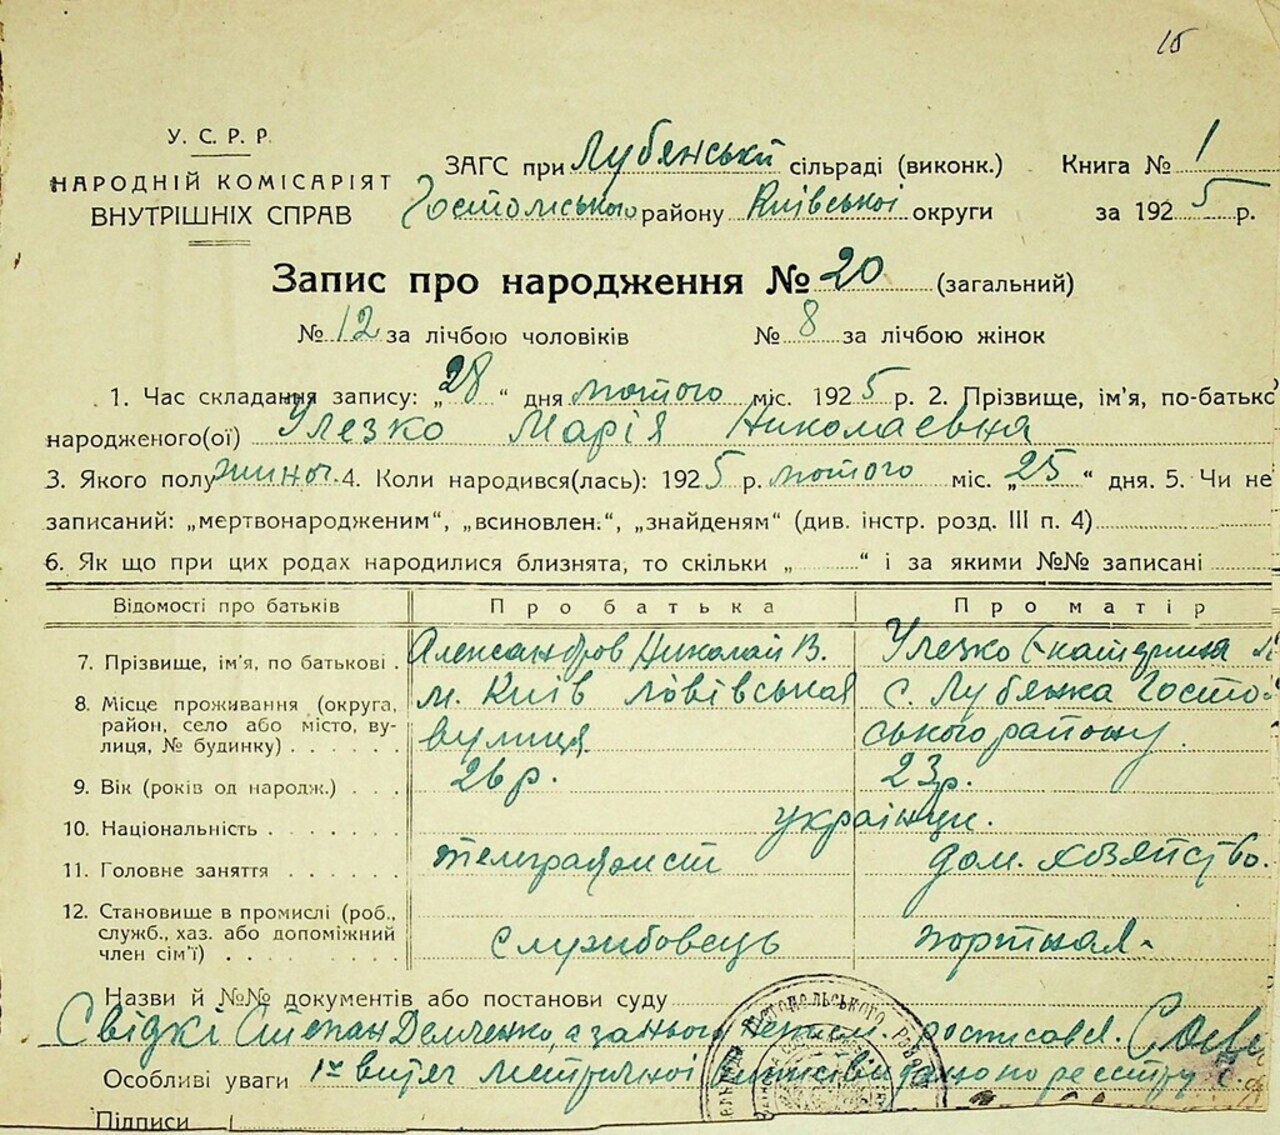 15
У. С. Р. Р.
НАРОДНІЙ КОМІСАРІЯТ
ВНУТРІШНІХ СПРАВ
ЗАГС при Лубянській сільраді (виконк.)
Гостомського району Київської округи
Книга № 1
за 1925 р.
Запис про народження № 20 (загальний)
№ 12 за лічбою чоловіків № 8 за лічбою жінок
1. Час складання запису: „28“ дня лютого міс. 1925 р. 2. Прізвище, ім'я, по-батько
народженого(ої) Улезко Марія Николаєвна
3. Якого полу жиноч. 4. Коли народився(лась): 1925 р. лютого міс. „25“ дня. 5. Чи не
записаний: „мертвонародженим“, „всиновлен.“, „знайденям“ (див. інстр. розд. III п. 4)
6. Як що при цих родах народилися близнята, то скільки „ “ і за якими №№ записані
Відомості про батьків Про батька Про матір
7. Прізвище, ім'я, по батькові . Александров Николай В. Улезко Екатерина
8. Місце проживання (округа, м. Київ Львівськая с. Лубянка Госто-
район, село або місто, ву- вулиця. ського району.
лиця, № будинку)
9. Вік (років од народж.) 26 р. 23 р.
10. Національність українци.
11. Головне заняття телеграфист дом. хозяйство.
12. Становище в промислі (роб.,
служб., хаз. або допоміжний
член сім'ї) службовець портная.
Назви й №№ документів або постанови суду
Свідкі Степан Демченко, а за нього росписався.
Особливі уваги 1й витяг метричної виписи видано по реєстру
Підписи